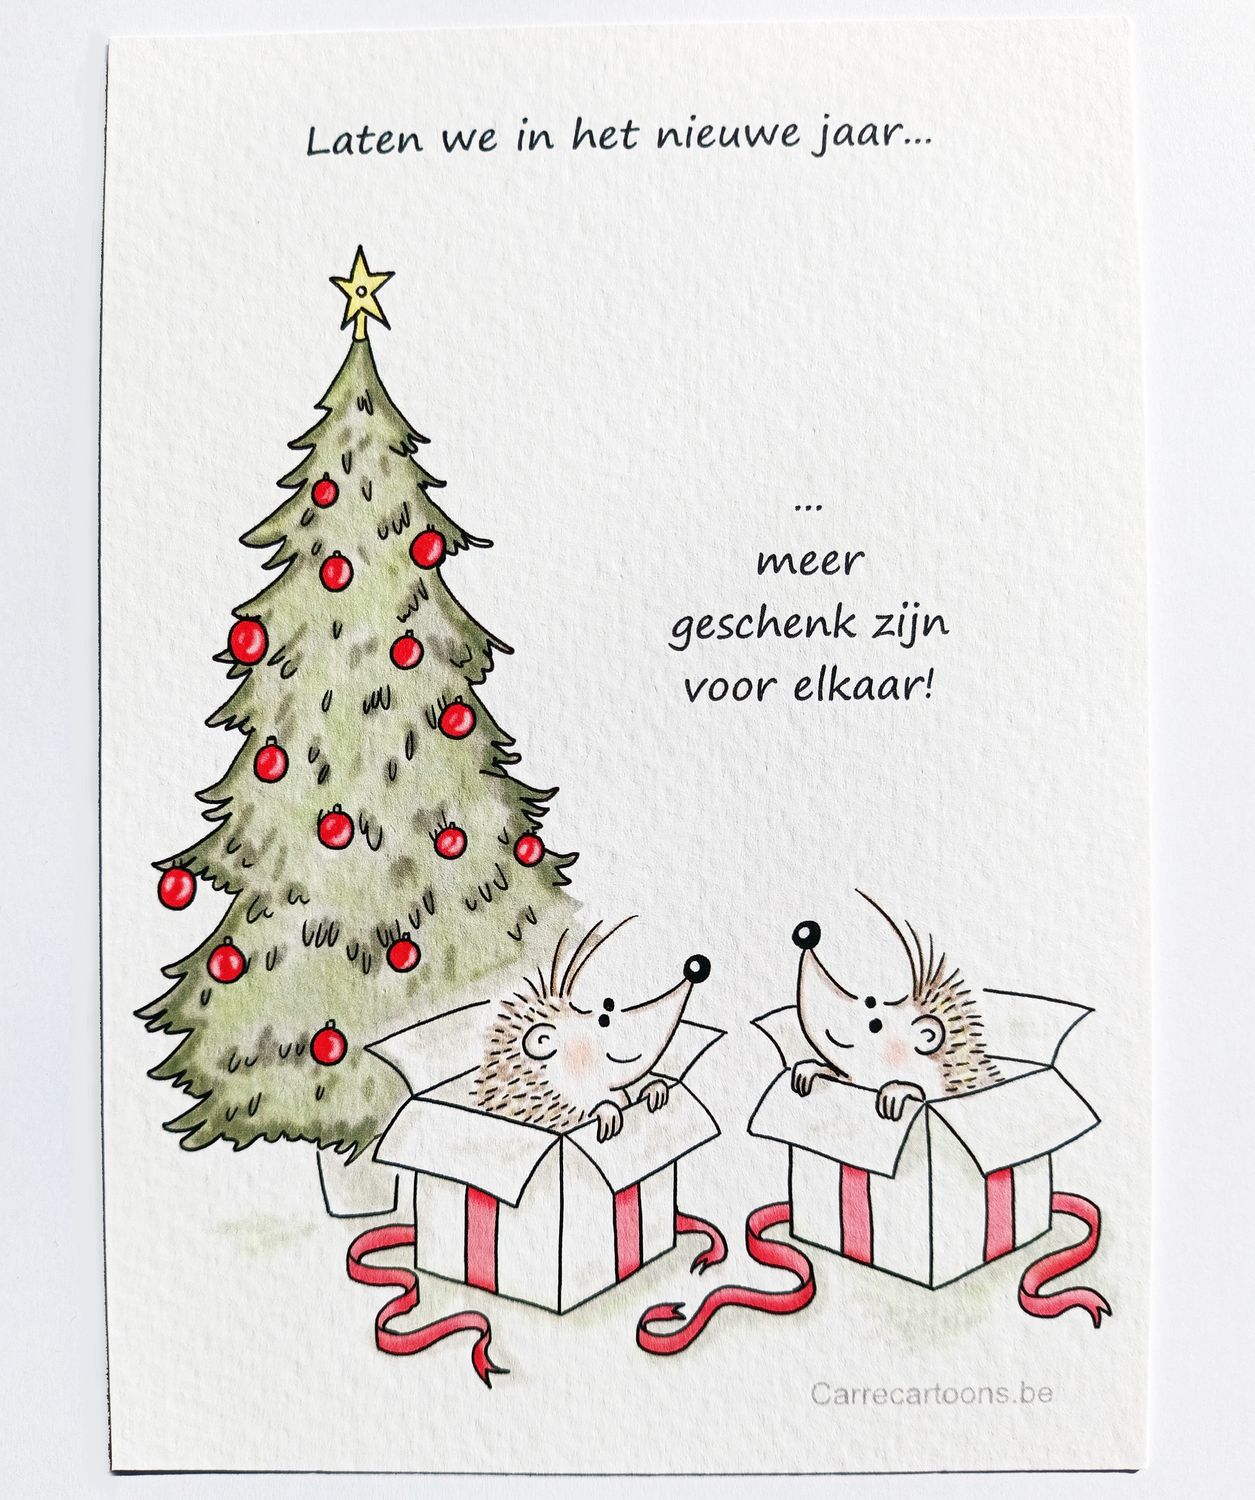 Laten we in het nieuwe jaar...
...
meer
geschenk zijn
voor elkaar!
Carrecartoons.be